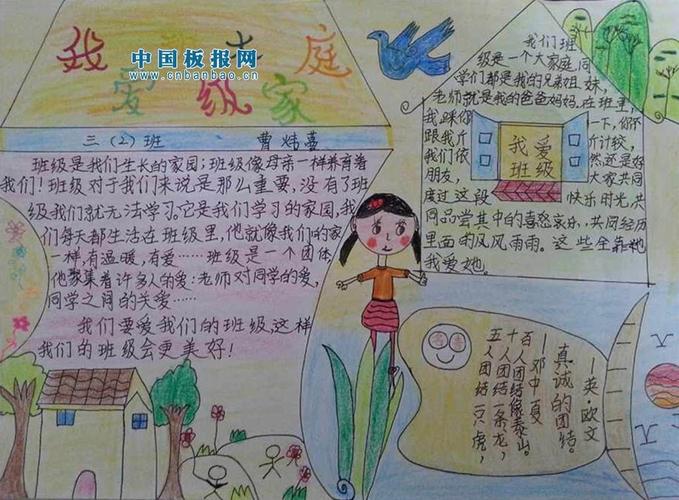 中国板报网
www.cnbanbao.cn
我 庭
爱 级 家
三(2)班 曹炜
班级是我们生长的家园;班级像母亲一样养育着
我们!班级对于我们来说是那么重要,没有了班
级我们就无法学习。它是我们学习的家园,我
们每天都生活在班级里,他就像我们的家
一样有温暖,有爱……班级是一个团体
他聚集着许多人的爱:老师对同学的爱,
同学之间的关爱……
我们要爱我们的班级,这样
我们的班级会更美好!
我们班
级是一个大家庭,同
学们都是我的兄弟姐妹,
老师就是我的爸爸妈妈,在班里,
我踩你一下,你不
跟我斤斤计较,
我们依然还是好
朋友,大家共同
度过这段快乐时光,共
同品尝其中的喜怒哀乐,共同经历
里面的风风雨雨。这些全靠她
我爱她。
我爱
班级
五人团结一只虎,
十人团结一条龙,
百人团结像泰山。
——邓中夏
真诚的团结。
——英·欧文